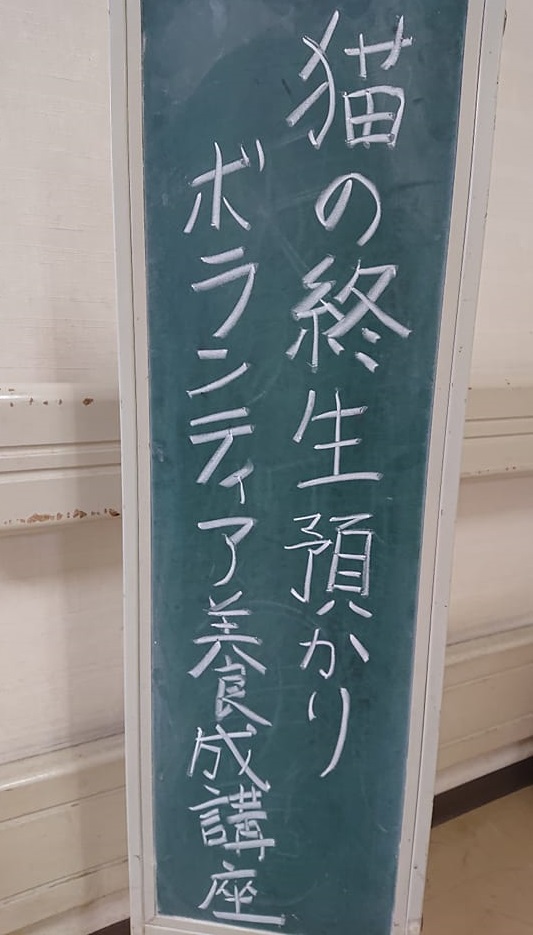 猫の終生預かり
ボランティア養成講座